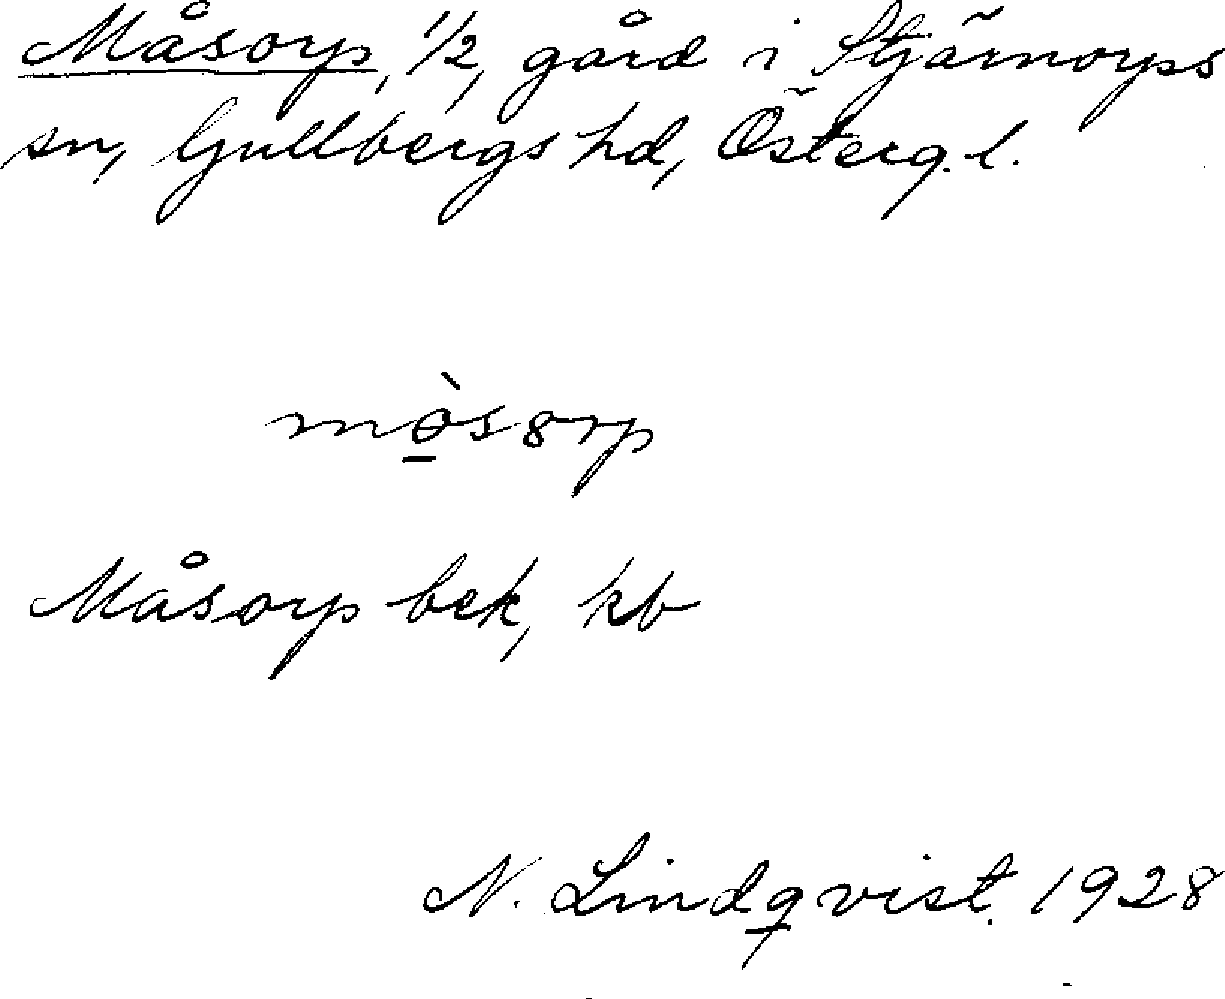 Måsorp, 1/2, gård i Stjärnorps
sn, Gullbergs hd, Österg. l.
mòsorp
Måsorp bek, kb
N. Lindqvist. 1928